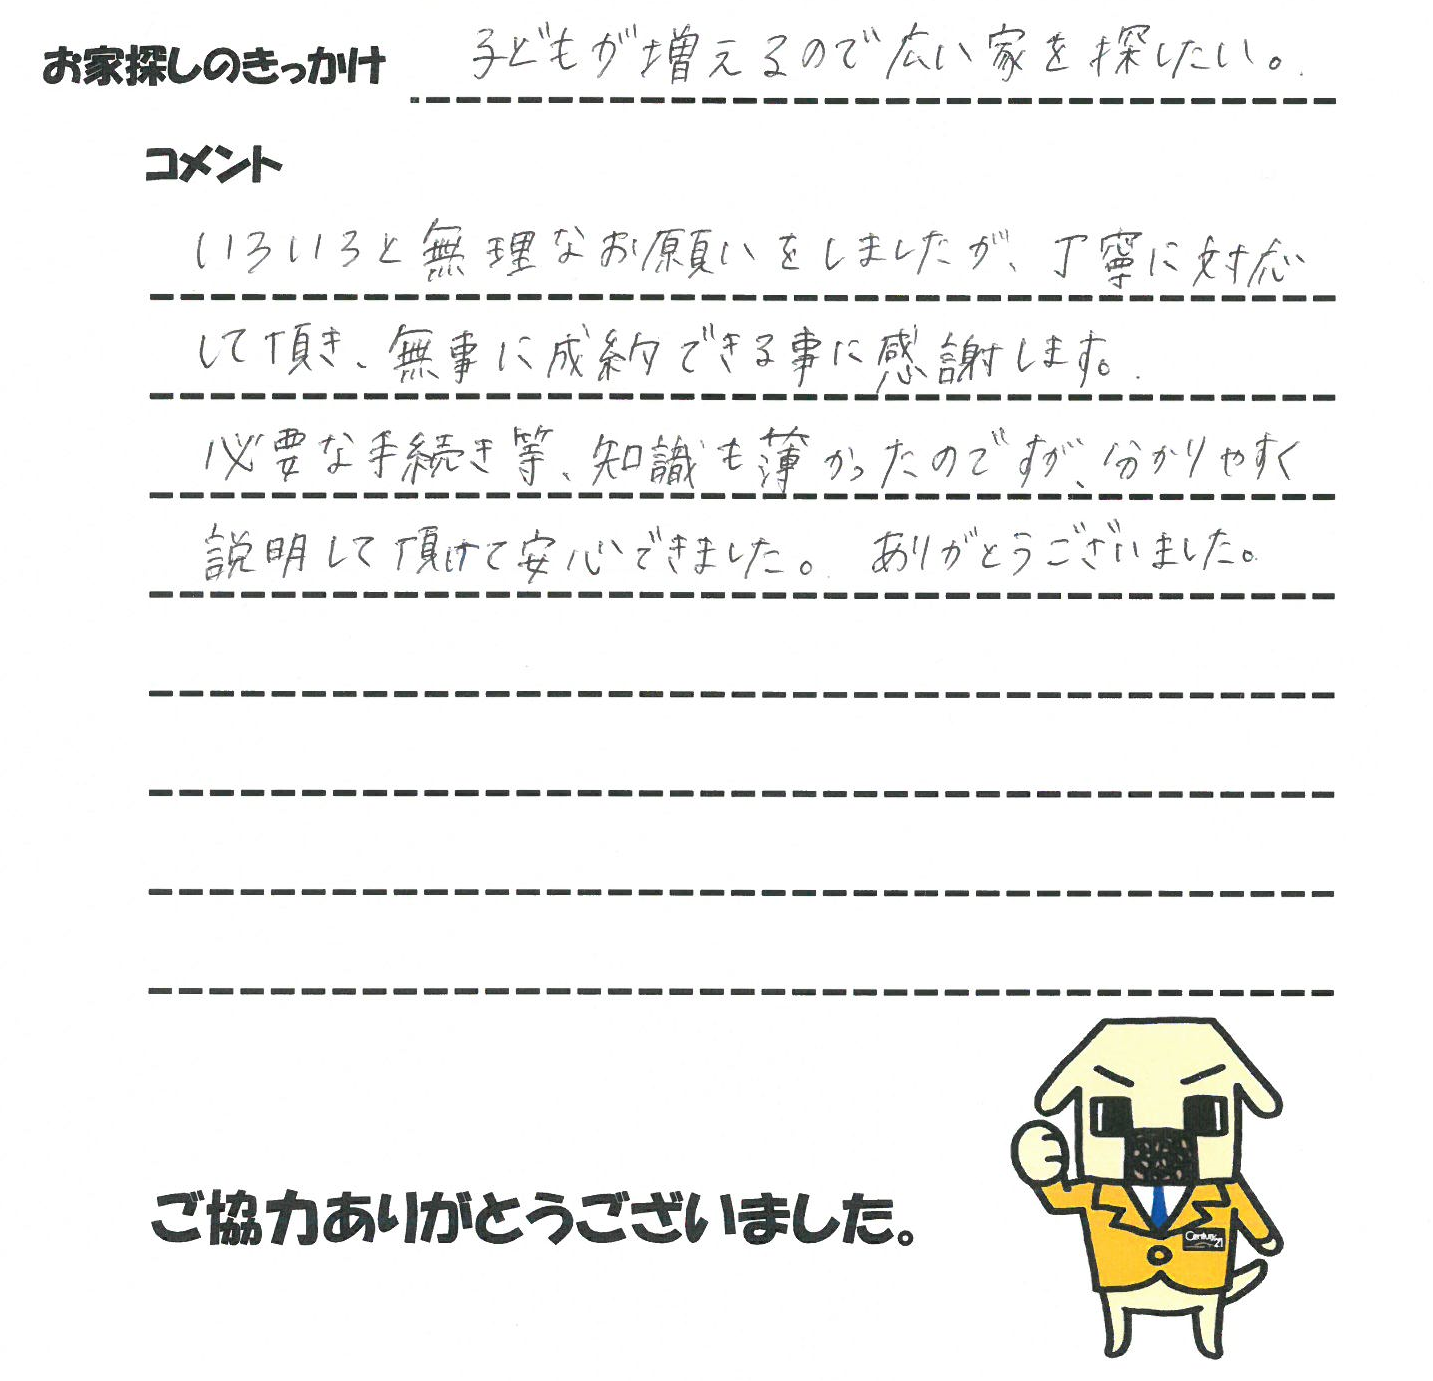 お家探しのきっかけ 子どもが増えるので広い家を探したい。
コメント
いろいろと無理なお願いをしましたが、丁寧に対応
して頂き、無事に成約できる事に感謝します。
必要な手続き等、知識も薄かったのですが、分かりやすく
説明して頂けて安心できました。 ありがとうございました。
ご協力ありがとうございました。
Century 21